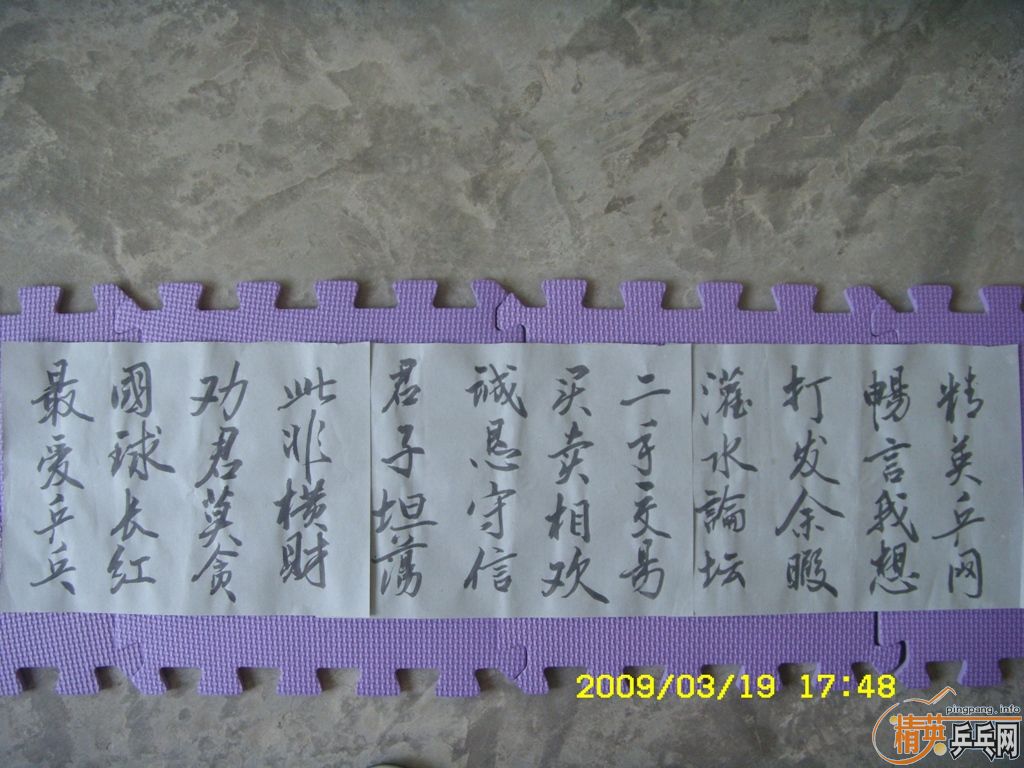 精英乒网
暢言我想
打发余暇
灌水論坛
二手交易
买卖相欢
誠恳守信
君子坦荡
此非横財
劝君莫贪
國球长红
最爱乒乓
2009/03/19 17:48
pingpang.info
精英乒乓网